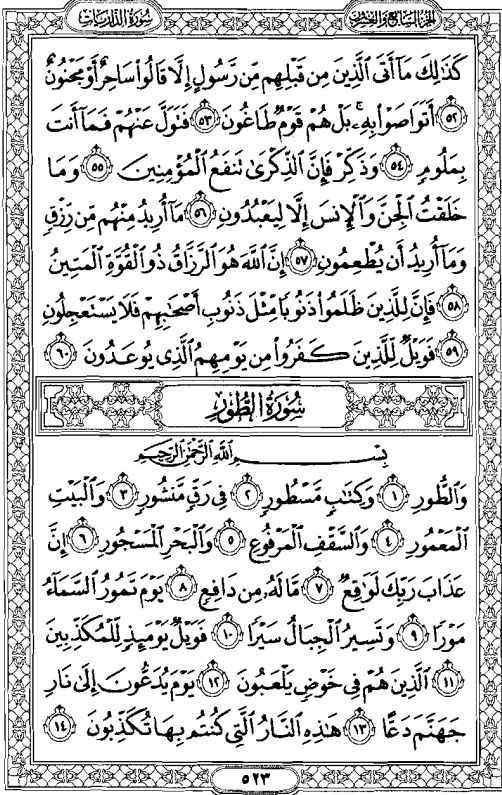 الجزء السابع والعشرون
سورة الذاريات
كَذَٰلِكَ مَآ أَتَى ٱلَّذِينَ مِن قَبْلِهِم مِّن رَّسُولٍ إِلَّا قَالُوا۟ سَاحِرٌ أَوْ مَجْنُونٌ
٥٢ أَتَوَاصَوْا۟ بِهِۦ ۚ بَلْ هُمْ قَوْمٌ طَاغُونَ ٥٣ فَتَوَلَّ عَنْهُمْ فَمَآ أَنتَ
بِمَلُومٍ ٥٤ وَذَكِّرْ فَإِنَّ ٱلذِّكْرَىٰ تَنفَعُ ٱلْمُؤْمِنِينَ ٥٥ وَمَا
خَلَقْتُ ٱلْجِنَّ وَٱلْإِنسَ إِلَّا لِيَعْبُدُونِ ٥٦ مَآ أُرِيدُ مِنْهُم مِّن رِّزْقٍ
وَمَآ أُرِيدُ أَن يُطْعِمُونِ ٥٧ إِنَّ ٱللَّهَ هُوَ ٱلرَّزَّاقُ ذُو ٱلْقُوَّةِ ٱلْمَتِينُ
٥٨ فَإِنَّ لِلَّذِينَ ظَلَمُوا۟ ذَنُوبًا مِّثْلَ ذَنُوبِ أَصْحَٰبِهِمْ فَلَا يَسْتَعْجِلُونِ
٥٩ فَوَيْلٌ لِّلَّذِينَ كَفَرُوا۟ مِن يَوْمِهِمُ ٱلَّذِى يُوعَدُونَ ٦٠
سُورَةُ الطُّورِ
بِسْمِ ٱللَّهِ ٱلرَّحْمَٰنِ ٱلرَّحِيمِ
وَٱلطُّورِ ١ وَكِتَٰبٍ مَّسْطُورٍ ٢ فِى رَقٍّ مَّنشُورٍ ٣ وَٱلْبَيْتِ
ٱلْمَعْمُورِ ٤ وَٱلسَّقْفِ ٱلْمَرْفُوعِ ٥ وَٱلْبَحْرِ ٱلْمَسْجُورِ ٦ إِنَّ
عَذَابَ رَبِّكَ لَوَٰقِعٌ ٧ مَّا لَهُۥ مِن دَافِعٍ ٨ يَوْمَ تَمُورُ ٱلسَّمَآءُ
مَوْرًا ٩ وَتَسِيرُ ٱلْجِبَالُ سَيْرًا ١٠ فَوَيْلٌ يَوْمَئِذٍ لِّلْمُكَذِّبِينَ
١١ ٱلَّذِينَ هُمْ فِى خَوْضٍ يَلْعَبُونَ ١٢ يَوْمَ يُدَعُّونَ إِلَىٰ نَارِ
جَهَنَّمَ دَعًّا ١٣ هَٰذِهِ ٱلنَّارُ ٱلَّتِى كُنتُم بِهَا تُكَذِّبُونَ ١٤
٥٢٣